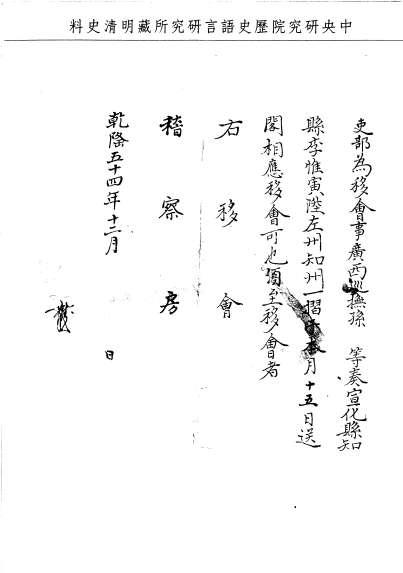 中央研究院歷史語言研究所藏明清史料
吏部為移會事廣西巡撫孫　等奏宣化縣知
縣李惟寅陞左州知州一摺于本月十五日送
閣相應移會可也須至移會者
右移會
稽察房
乾隆五十四年十二月　日